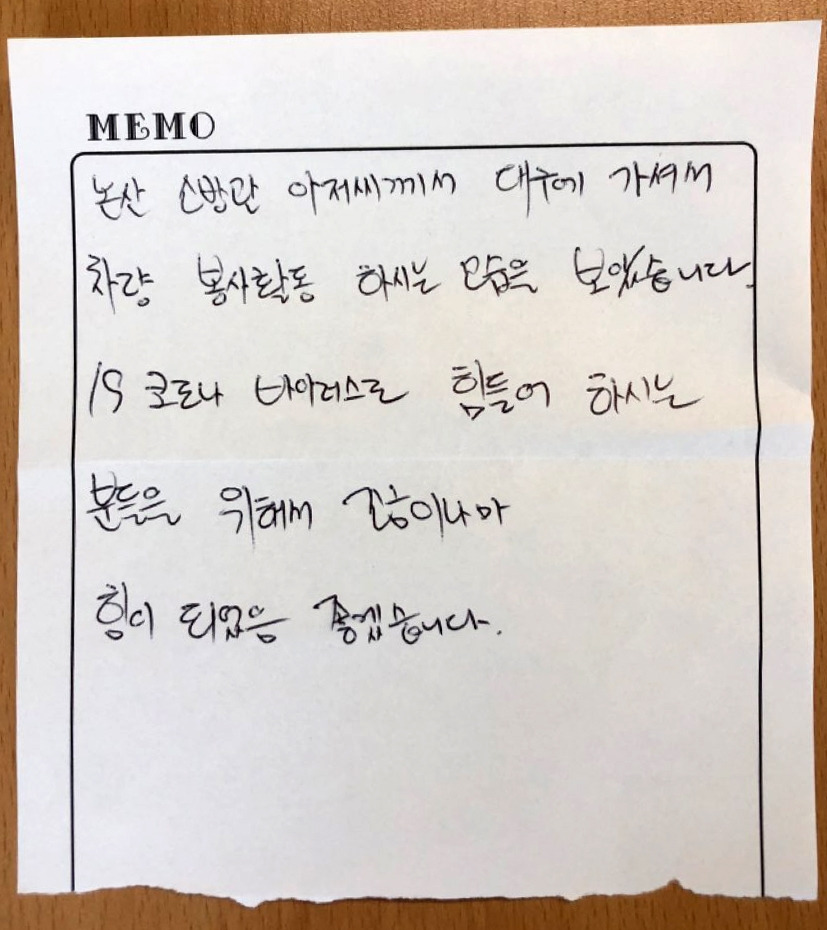 MEMO
논산 소방관 아저씨께서 대구에 가셔서
차량 봉사활동 하시는 모습을 보았습니다.
19 코로나 바이러스로 힘들어 하시는
분들을 위해서 조금이나마
힘이 되었음 좋겠습니다.